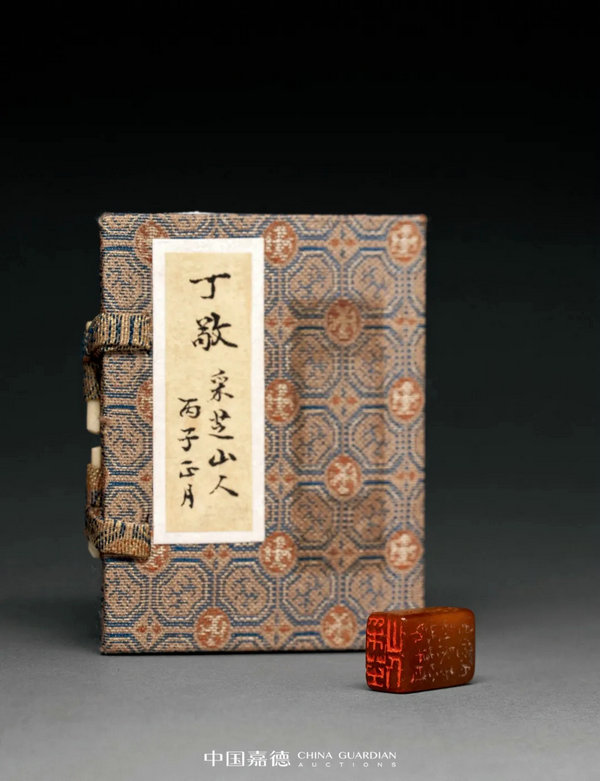 丁敬
采芝山人
丙子正月
中国嘉德 CHINA GUARDIAN
AUCTIONS